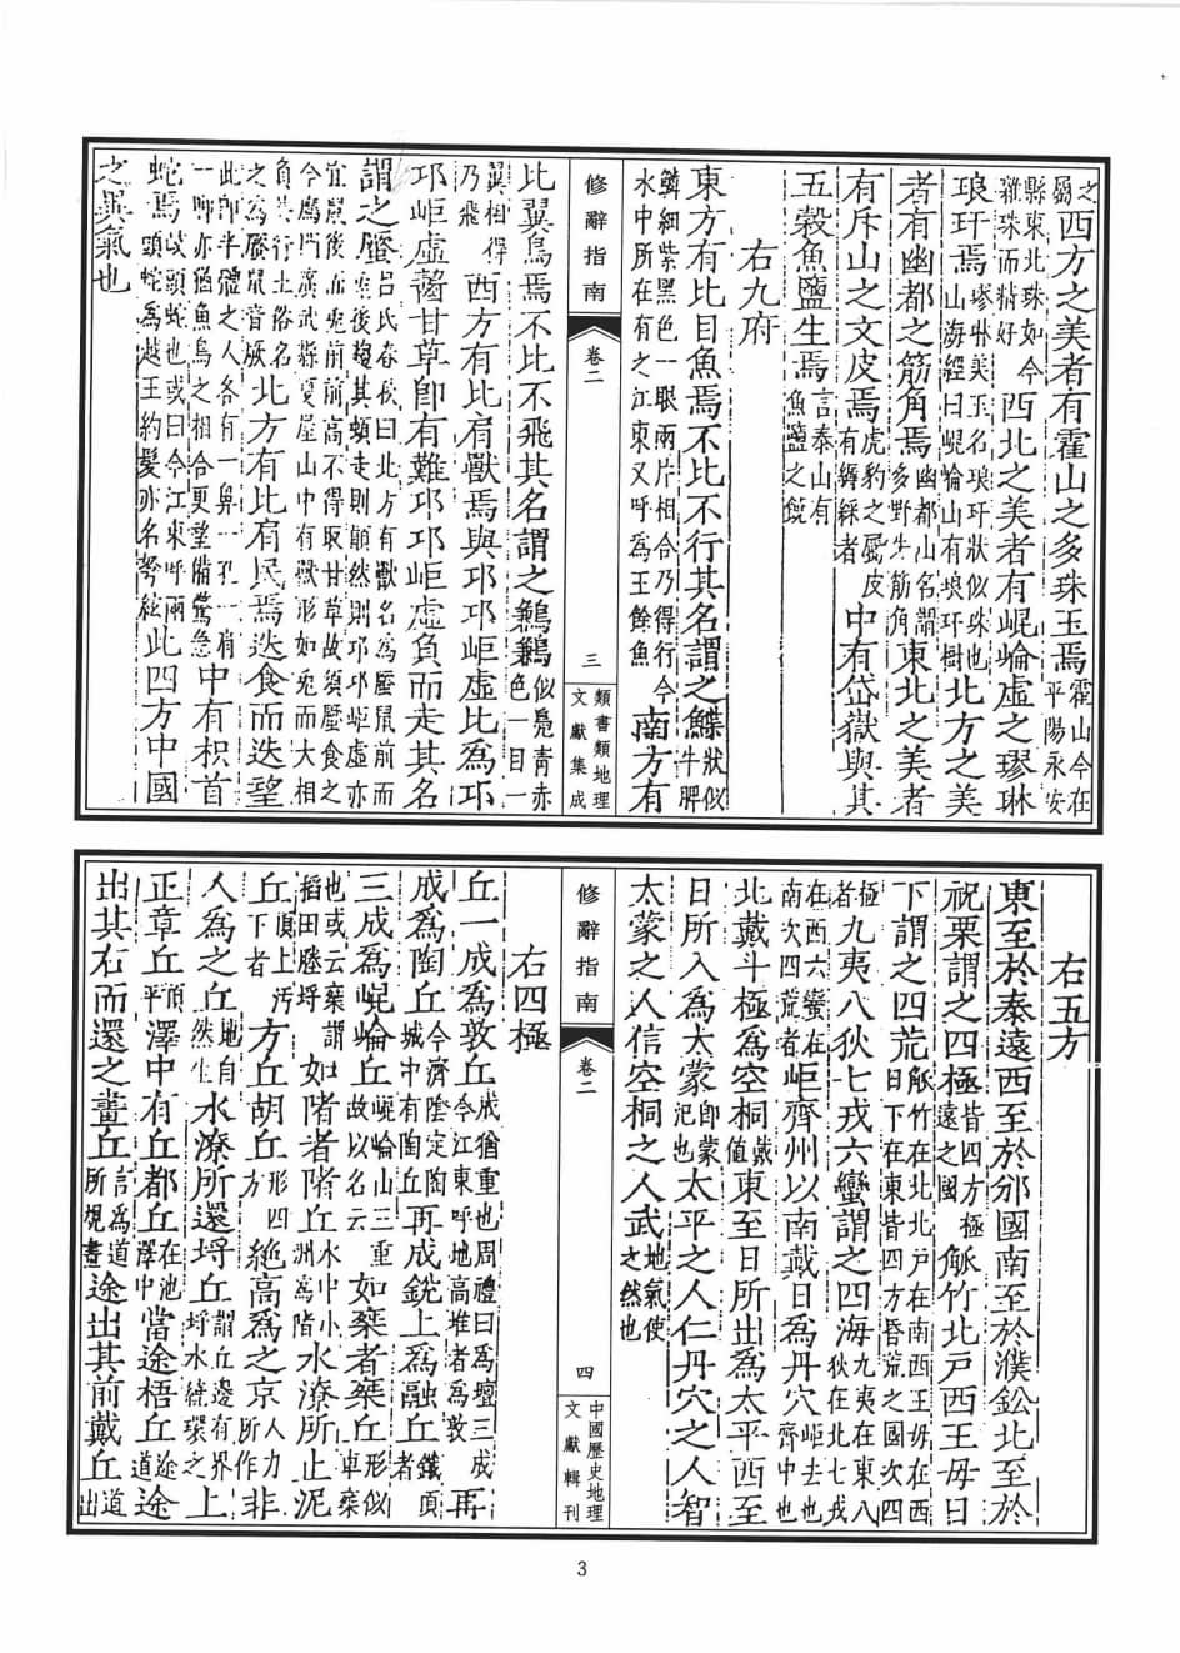 之屬西方之美者有霍山之多珠玉焉霍山今在平陽永安
縣東北珠如今雜珠而精好西北之美者有崐崘虛之璆琳
琅玕焉璆琳美玉名琅玕狀似珠也山海經曰崐崘山有琅玕樹北方之美
者有幽都之筋角焉幽都山名謂多野牛筋角東北之美者
有斥山之文皮焉虎豹之屬皮有縟綵者中有岱嶽與其
五穀魚鹽生焉言泰山有魚鹽之饒
右九府
東方有比目魚焉不比不行其名謂之鰈狀似牛脾
鱗細紫黑色一眼兩片相合乃得行今水中所在有之江東又呼爲王餘魚南方有
修辭指南
卷二
三
類書類地理
文獻集成
比翼鳥焉不比不飛其名謂之鶼鶼似鳧青赤色一目一
翼相得乃飛西方有比肩獸焉與邛邛岠虛比爲邛
邛岠虛齧甘草卽有難邛邛岠虛負而走其名
謂之蟨呂氏春秋曰北方有獸名爲蟨鼠前而兔後趨其頓走則顛然則邛邛岠虛亦
宜鼠後而兔前前高不得取甘草故須蟨食之今鴈門廣武縣夏屋山中有獸形如兔而大相
負共行土俗名之爲蟨鼠音厥北方有比肩民焉迭食而迭望
此卽半體之人各有一鼻一孔一肩一脚亦猶魚鳥之相合更望備驚急中有枳首
蛇焉岐頭蛇也或曰今江東呼兩頭蛇爲越王約髮亦名弩絃此四方中國
之異氣也
右五方
東至於泰遠西至於邠國南至於濮鈆北至於
祝栗謂之四極皆四方極遠之國觚竹北戶西王母日
下謂之四荒觚竹在北北戶在南西王母在西日下在東皆四方昏荒之國次四
極者九夷八狄七戎六蠻謂之四海九夷在東八狄在北七戎
在西六蠻在南次四荒者岠齊州以南戴日爲丹穴岠去也齊中也
北戴斗極爲空桐戴值東至日所出爲太平西至
日所入爲太蒙卽蒙汜也太平之人仁丹穴之人智
太蒙之人信空桐之人武地氣使之然也
修辭指南
卷二
四
中國歷史地理
文獻輯刊
右四極
丘一成爲敦丘成猶重也周禮曰爲壇三成今江東呼地高堆者爲敦再
成爲陶丘今濟陰定陶城中有陶丘再成銳上爲融丘鐵頂者
三成爲崐崘丘崐崘山三重故以名云如椉者椉丘形似車椉
也或云椉謂稻田塍埒如陼者陼丘水中小洲爲陼水潦所止泥
丘頂上汚下者方丘胡丘形四方絕高爲之京人力所作非
人爲之丘地自然生水潦所還埒丘謂丘邊有界埒水繞環之上
正章丘頂平澤中有丘都丘在池澤中當途梧丘途道途
出其右而還之畫丘言爲道所規畫途出其前戴丘道出
3